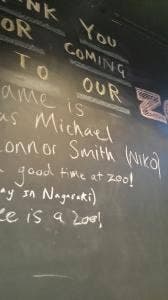 NK YOU
OR COMING
TO OUR
Z
ame is
as Michael
onnor Smith (NIKO)
good time at zoo!
ay in Nagasaki)
ee is a Zoo!